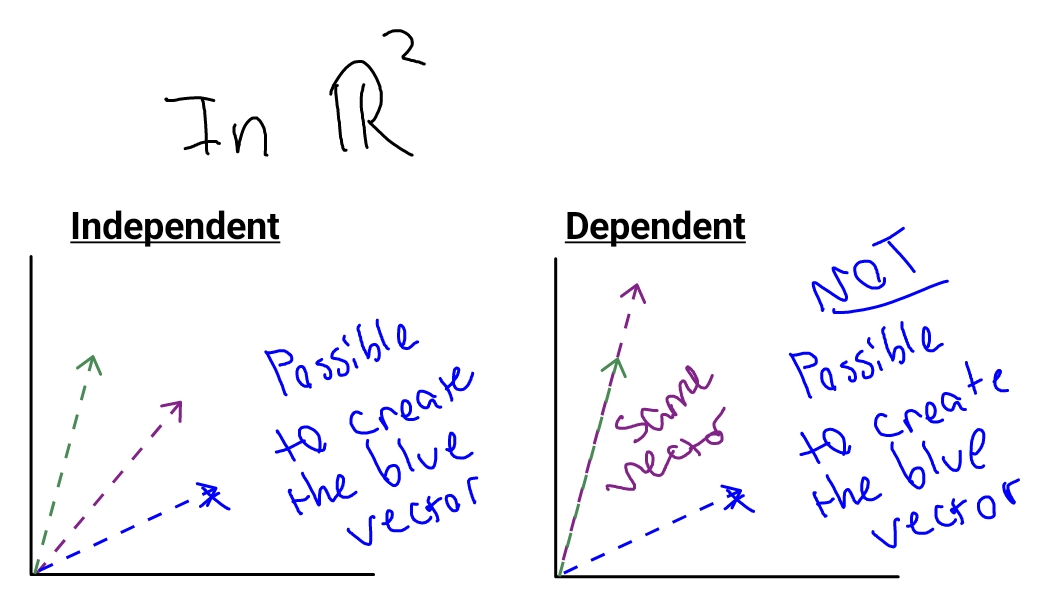 In ℝ²
Independent
Possible
to create
the blue
vector
Dependent
same
vector
NOT
Possible
to create
the blue
vector